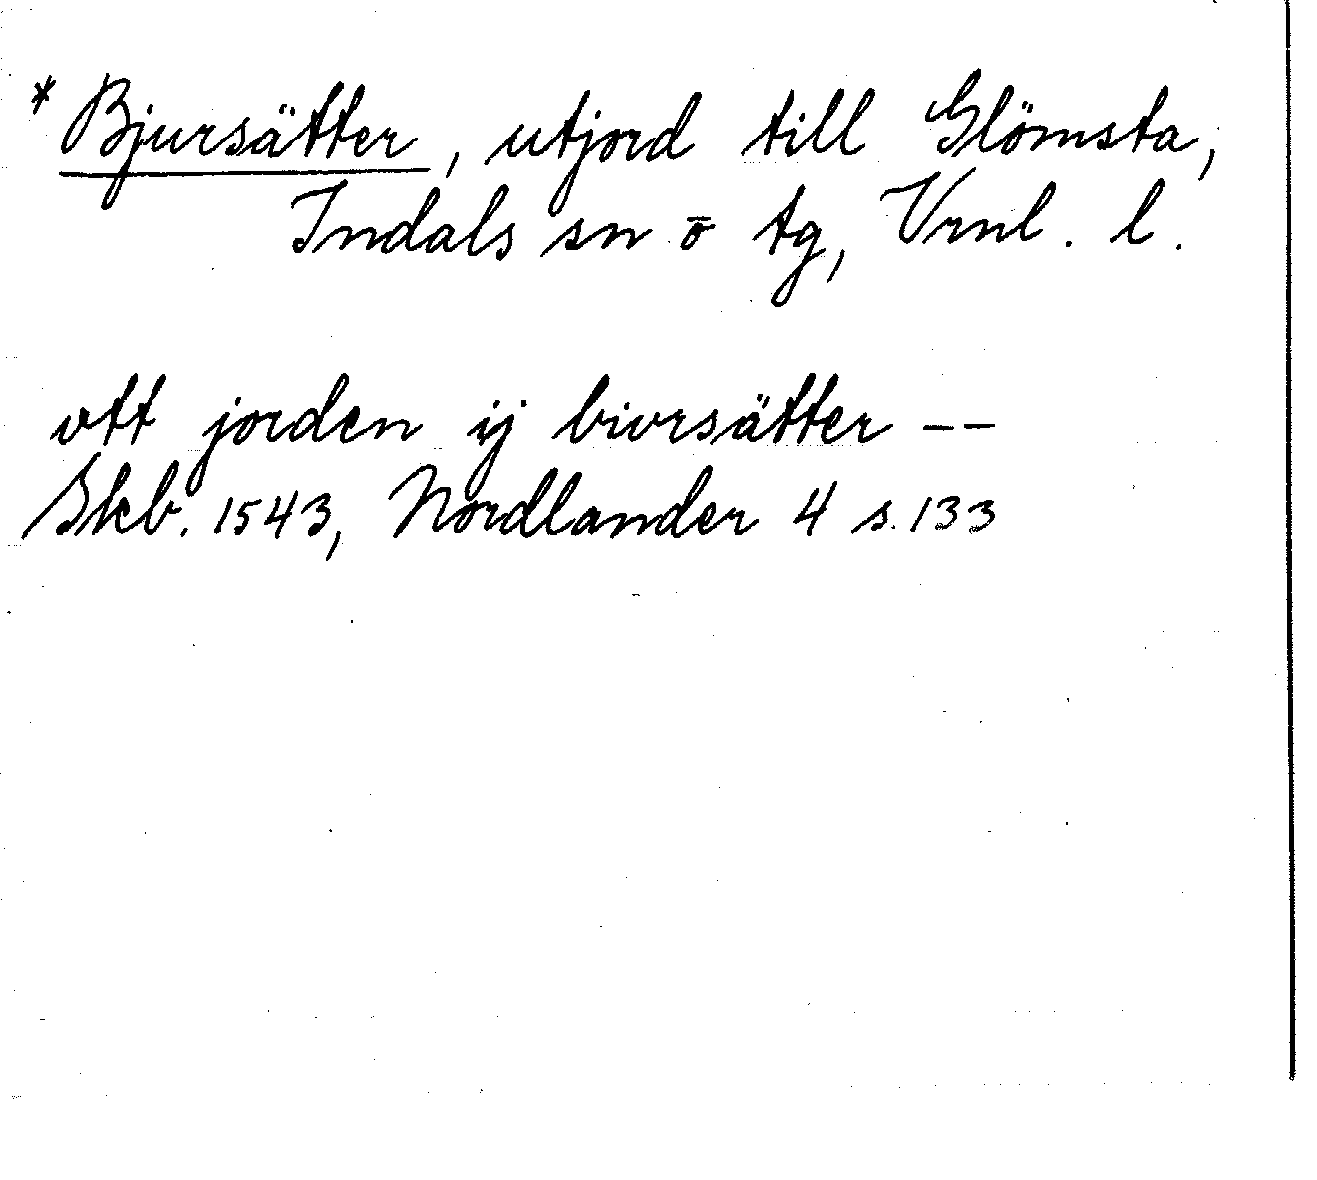 * Bjursätter, utjord till Glömsta,
Indals sn ō tg, Vrnl. l.
vtt jorden ij bivrsätter --
Skb. 1543, Nordlander 4 s. 133